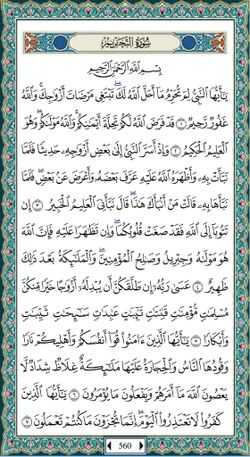 سُورَةُ التَّحْرِيمِ
بِسْمِ اللَّهِ الرَّحْمَٰنِ الرَّحِيمِ
يَٰٓأَيُّهَا ٱلنَّبِىُّ لِمَ تُحَرِّمُ مَآ أَحَلَّ ٱللَّهُ لَكَ تَبْتَغِى مَرْضَاتَ أَزْوَٰجِكَ وَٱللَّهُ
غَفُورٌ رَّحِيمٌ ١ قَدْ فَرَضَ ٱللَّهُ لَكُمْ تَحِلَّةَ أَيْمَٰنِكُمْ وَٱللَّهُ مَوْلَىٰكُمْ وَهُوَ
ٱلْعَلِيمُ ٱلْحَكِيمُ ٢ وَإِذْ أَسَرَّ ٱلنَّبِىُّ إِلَىٰ بَعْضِ أَزْوَٰجِهِۦ حَدِيثًا فَلَمَّا
نَبَّأَتْ بِهِۦ وَأَظْهَرَهُ ٱللَّهُ عَلَيْهِ عَرَّفَ بَعْضَهُۥ وَأَعْرَضَ عَنۢ بَعْضٍ فَلَمَّا
نَبَّأَهَا بِهِۦ قَالَتْ مَنْ أَنۢبَأَكَ هَٰذَا قَالَ نَبَّأَنِىَ ٱلْعَلِيمُ ٱلْخَبِيرُ ٣ إِن
تَتُوبَآ إِلَى ٱللَّهِ فَقَدْ صَغَتْ قُلُوبُكُمَا وَإِن تَظَٰهَرَا عَلَيْهِ فَإِنَّ ٱللَّهَ
هُوَ مَوْلَىٰهُ وَجِبْرِيلُ وَصَٰلِحُ ٱلْمُؤْمِنِينَ وَٱلْمَلَٰٓئِكَةُ بَعْدَ ذَٰلِكَ
ظَهِيرٌ ٤ عَسَىٰ رَبُّهُۥٓ إِن طَلَّقَكُنَّ أَن يُبْدِلَهُۥٓ أَزْوَٰجًا خَيْرًا مِّنكُنَّ
مُسْلِمَٰتٍ مُّؤْمِنَٰتٍ قَٰنِتَٰتٍ تَٰٓئِبَٰتٍ عَٰبِدَٰتٍ سَٰٓئِحَٰتٍ ثَيِّبَٰتٍ
وَأَبْكَارًا ٥ يَٰٓأَيُّهَا ٱلَّذِينَ ءَامَنُوا۟ قُوٓا۟ أَنفُسَكُمْ وَأَهْلِيكُمْ نَارًا
وَقُودُهَا ٱلنَّاسُ وَٱلْحِجَارَةُ عَلَيْهَا مَلَٰٓئِكَةٌ غِلَاظٌ شِدَادٌ لَّا
يَعْصُونَ ٱللَّهَ مَآ أَمَرَهُمْ وَيَفْعَلُونَ مَا يُؤْمَرُونَ ٦ يَٰٓأَيُّهَا ٱلَّذِينَ
كَفَرُوا۟ لَا تَعْتَذِرُوا۟ ٱلْيَوْمَ إِنَّمَا تُجْزَوْنَ مَا كُنتُمْ تَعْمَلُونَ ٧
560